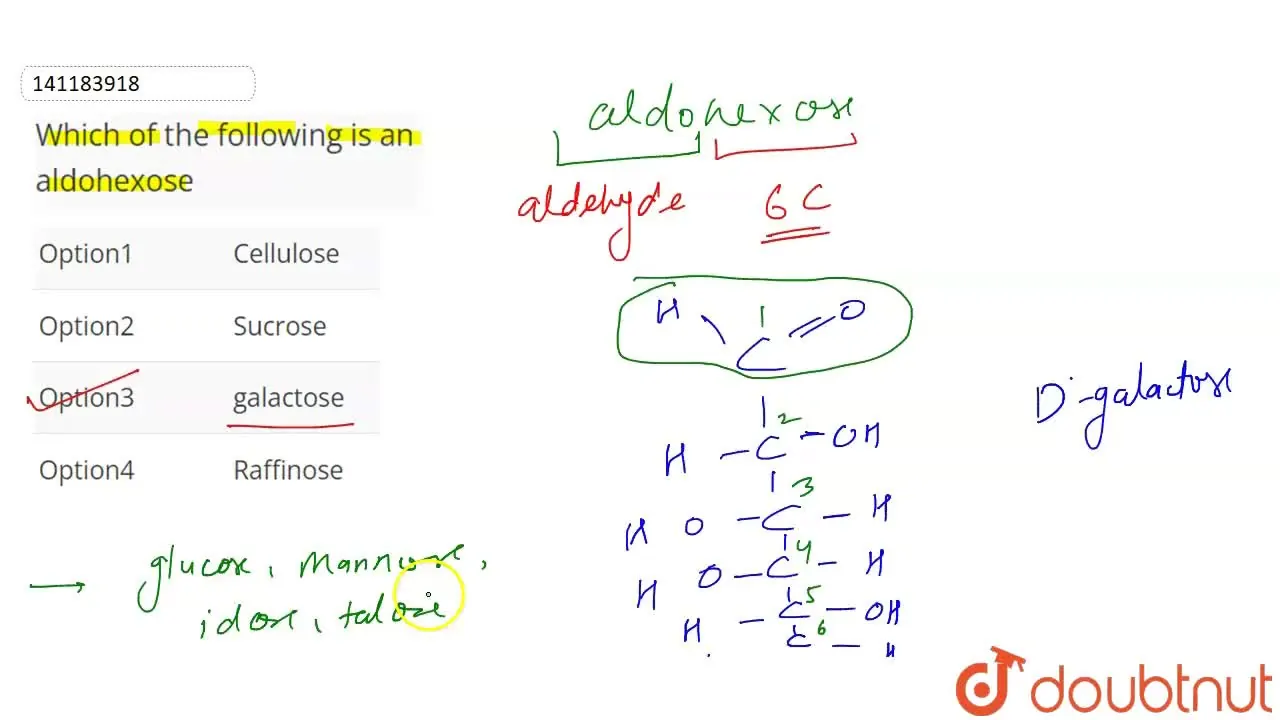 141183918
Which of the following is an
aldohexose
Option1 Cellulose
Option2 Sucrose
Option3 galactose
Option4 Raffinose
glucose, mannose,
idose, talose
aldohexose
aldehyde 6 C
H C O
1
2
H - C - OH
3
H O - C - H
4
H O - C - H
5
H - C - OH
6
C - H
D-galactose
doubtnut